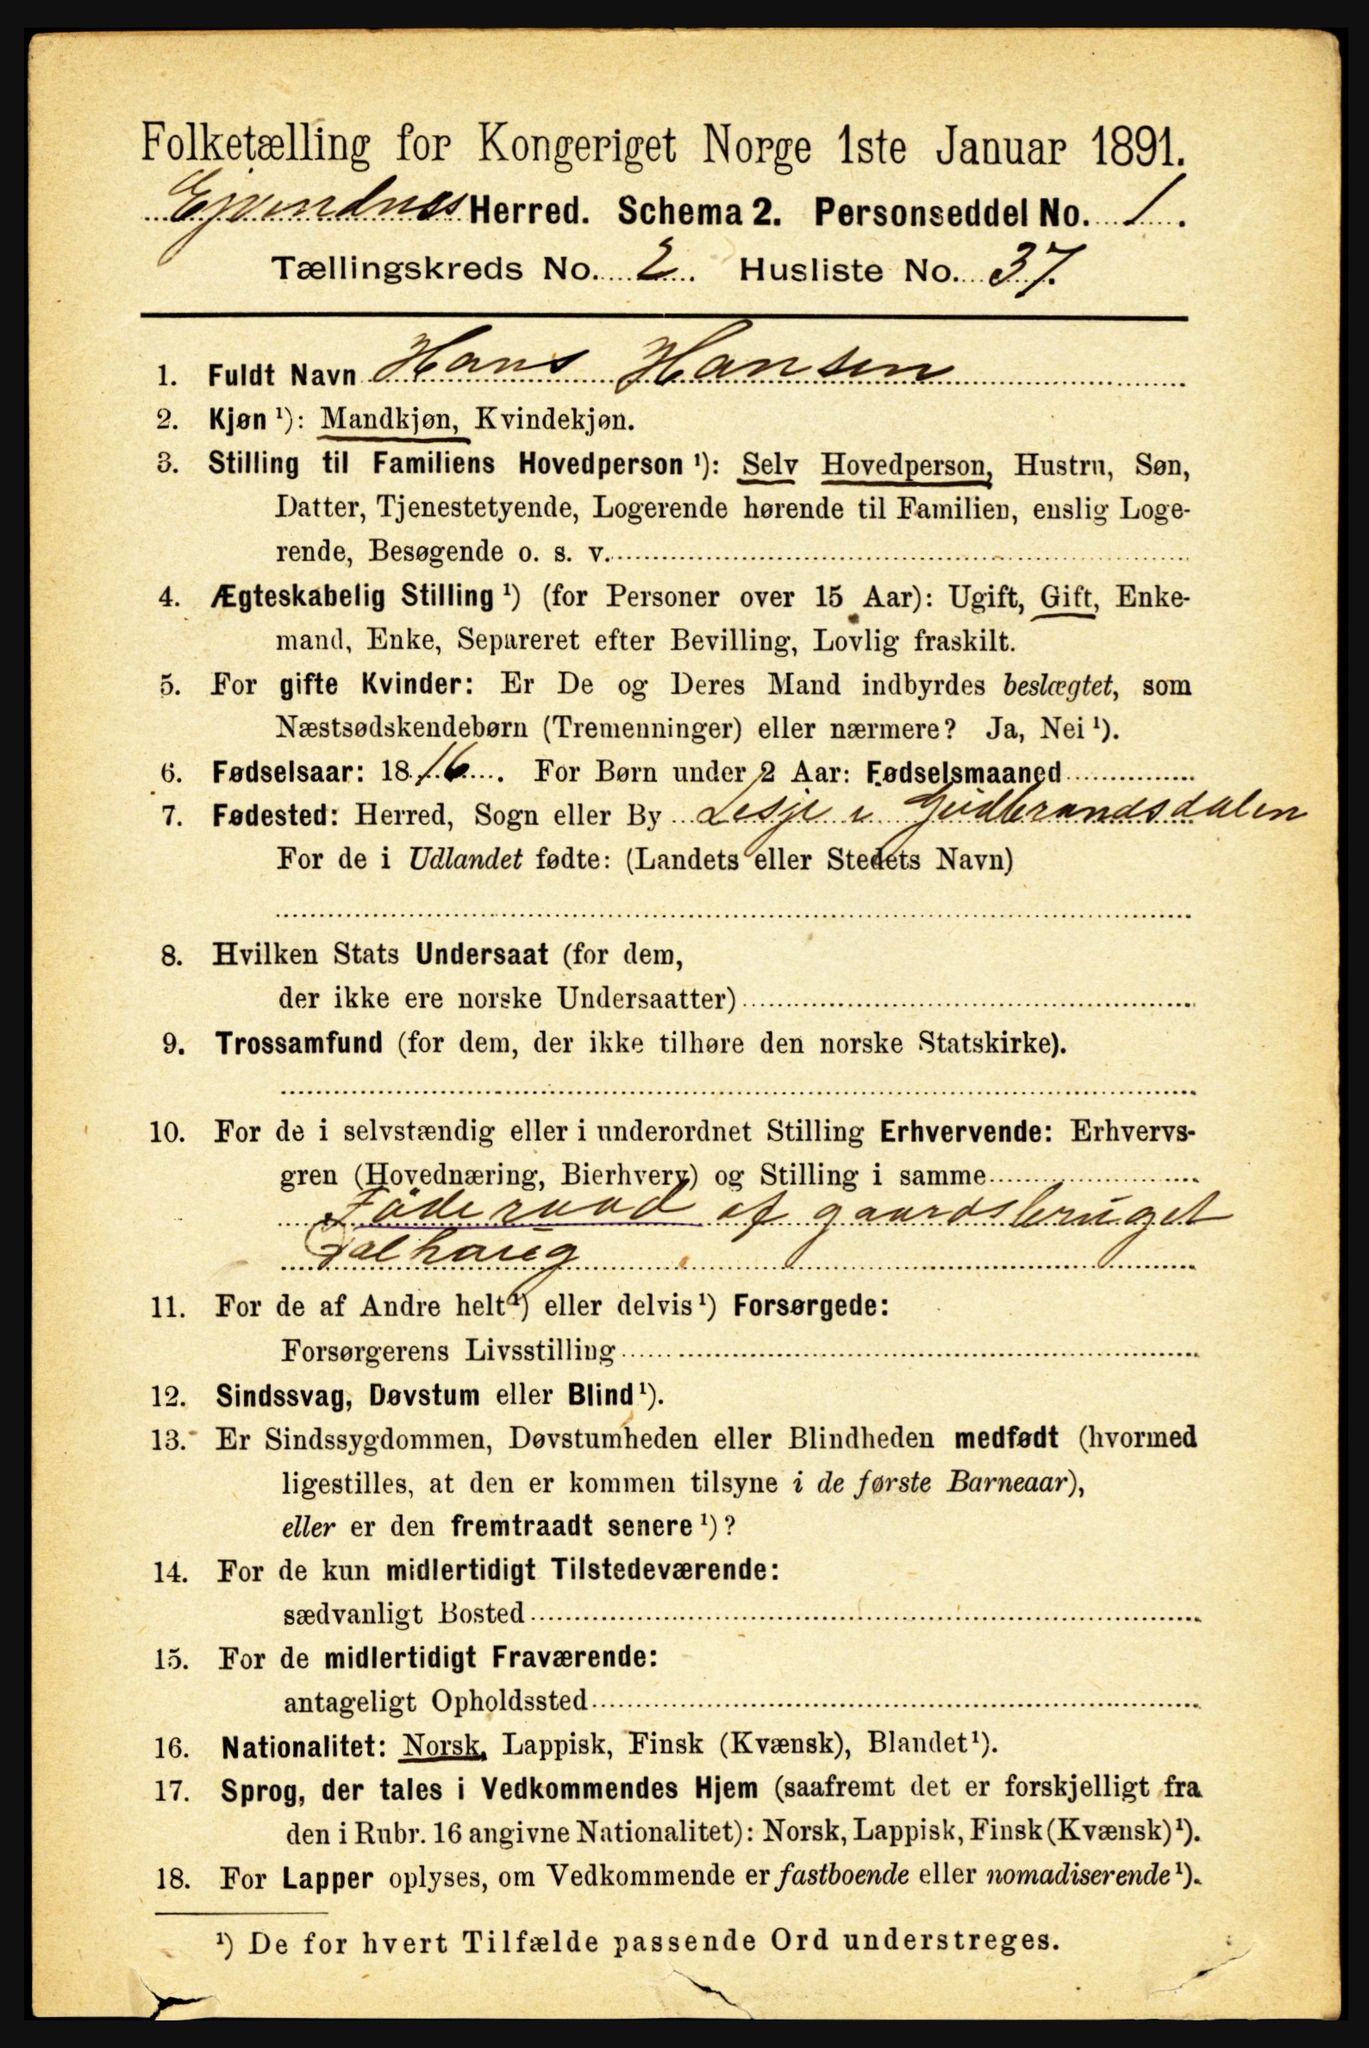 Folketælling for Kongeriget Norge 1ste Januar 1891.
Ejvindnes Herred. Schema 2. Personseddel No. 1.
Tællingskreds No. 2. Husliste No. 37.
1. Fuldt Navn Hans Hansen
2. Kjøn ¹): Mandkjøn, Kvindekjøn.
3. Stilling til Familiens Hovedperson ¹): Selv Hovedperson, Hustru, Søn,
Datter, Tjenestetyende, Logerende hørende til Familien, enslig Loge-
rende, Besøgende o. s. v.
4. Ægteskabelig Stilling ¹) (for Personer over 15 Aar): Ugift, Gift, Enke-
mand, Enke, Separeret efter Bevilling, Lovlig fraskilt.
5. For gifte Kvinder: Er De og Deres Mand indbyrdes beslægtet, som
Næstsødskendebørn (Tremenninger) eller nærmere? Ja, Nei ¹).
6. Fødselsaar: 1816. For Børn under 2 Aar: Fødselsmaaned
7. Fødested: Herred, Sogn eller By Lesje i Gudbrandsdalen
For de i Udlandet fødte: (Landets eller Stedets Navn)
8. Hvilken Stats Undersaat (for dem,
der ikke ere norske Undersaatter)
9. Trossamfund (for dem, der ikke tilhøre den norske Statskirke).
10. For de i selvstændig eller i underordnet Stilling Erhvervende: Erhvervs-
gren (Hovednæring, Bierhverv) og Stilling i samme
Föderaad af gaardsbruget
Dalhaug
11. For de af Andre helt ¹) eller delvis ¹) Forsørgede:
Forsørgerens Livsstilling
12. Sindssvag, Døvstum eller Blind ¹).
13. Er Sindssygdommen, Døvstumheden eller Blindheden medfødt (hvormed
ligestilles, at den er kommen tilsyne i de første Barneaar),
eller er den fremtraadt senere ¹)?
14. For de kun midlertidigt Tilstedeværende:
sædvanligt Bosted
15. For de midlertidigt Fraværende:
antageligt Opholdssted
16. Nationalitet: Norsk, Lappisk, Finsk (Kvænsk), Blandet ¹).
17. Sprog, der tales i Vedkommendes Hjem (saafremt det er forskjelligt fra
den i Rubr. 16 angivne Nationalitet): Norsk, Lappisk, Finsk (Kvænsk) ¹).
18. For Lapper oplyses, om Vedkommende er fastboende eller nomadiserende ¹).
¹) De for hvert Tilfælde passende Ord understreges.